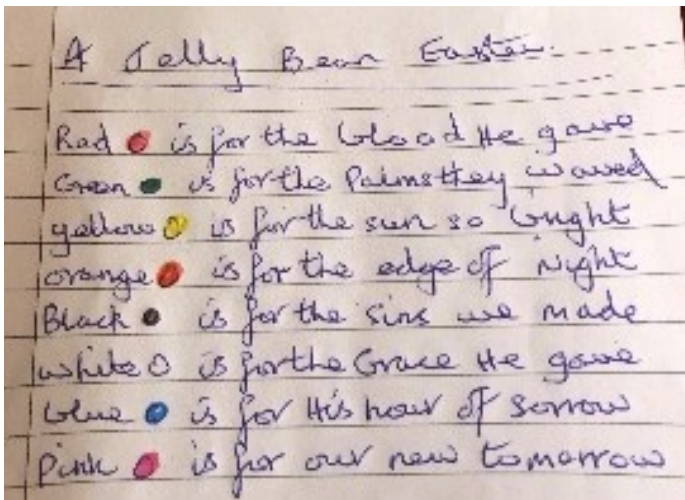 A Jelly Bean Easter.
Red is for the blood He gave
Green is for the Palms they waved
yellow is for the sun so bright
orange is for the edge of Night
Black is for the sins we made
white is for the Grace He gave
blue is for His hour of sorrow
Pink is for our new tomorrow